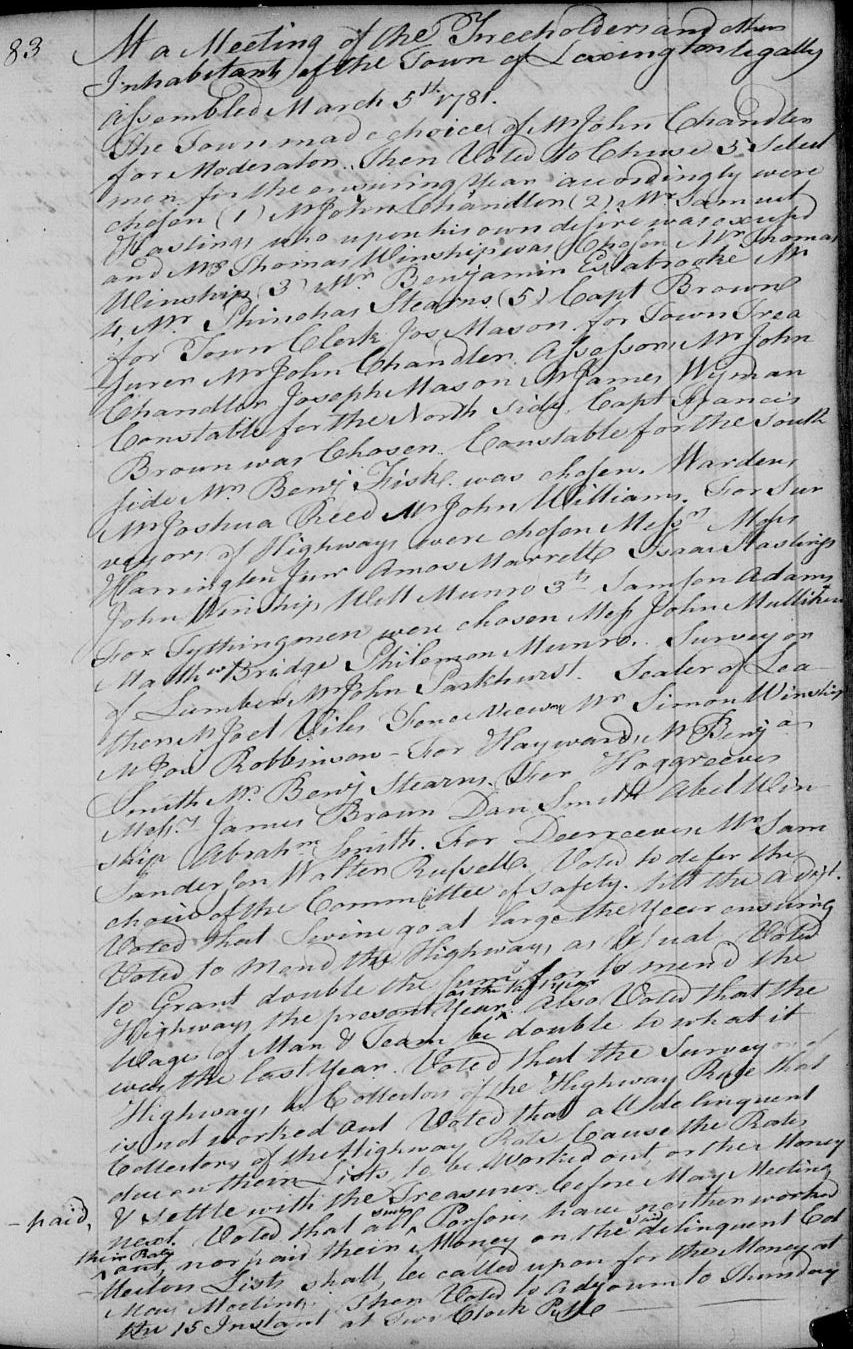 83
At a Meeting of the Freeholders and others
Inhabitants of the Town of Lexington legally
assembled March 5th 1781.
The Town made choice of Mr John Chandler
for Moderator. Then Voted to Chuse 5 Select
men for the ensuring Year accordingly were
chosen (1) Mr John Chandler (2) Mr Samuel
Hastings who upon his own desire was excused
and Mr Thomas Winship was Chosen Mr Thomas
Winship (3) Mr Benjamin Estabrooke Mr
4, Mr Phinehas Stearns (5) Capt Brown
for Town Clerk Jos Mason for Town Trea
surer Mr John Chandler Assessors Mr John
Chandler Joseph Mason Mr James Wyman
Constable for the North side Capt Francis
Brown was Chosen. Constable for the South
side Mr Benj Fisk was chosen. Wardens
Mr Joshua Reed Mr John Williams. For Sur
veyors of Highways were chosen Messrs
Harrington Junr Amos Marrett Isaac Hastings
John Winship Will Munro 3th Samson Adams
For Tythingmen were chosen Mess John Mulliken
Matthw Bridge Philemon Munro. Surveyor
of Lumber Mr John Parkhurst. Sealer of Lea
ther Mr Joel Viles Fence Viewers Mr Simon Winship
Mr Robbinson - For Haywards Mr Benj
Smith Mr Benj Stearns For Hoggreeves
Messrs James Brown Dan Smith Abel Win
ship Abrahm Smith. For Deerreeves Mr Sam
Sanderson Walter Russell. Voted to defer the
choice of the Committee of safety till the adjt.
Voted that Swine go at large the Year ensuring
Voted to Mend the Highways as Usual Voted
to Grant double the sum for to mend the
as the last year
Highways the present Year. Also Voted that the
Wage of Man & Team be double to what it
was the last Year. Voted that the Surveyors of
Highways be Collectors of the Highway Rate that
is not worked out Voted that all delinquent
Collectors of the Highway Rate Cause the Rates
due on their Lists, to be Worked out, or the Money
& settle with the Treasurer before May Meeting
- paid,
next. Voted that all such Persons have neither worked
their Rate
out, nor paid their Money on the said delinquent Col
lectors Lists shall be called upon for the Money at
May Meeting. Then Voted to Adjourn to Thursday
the 15 Instant at Two Clock P M